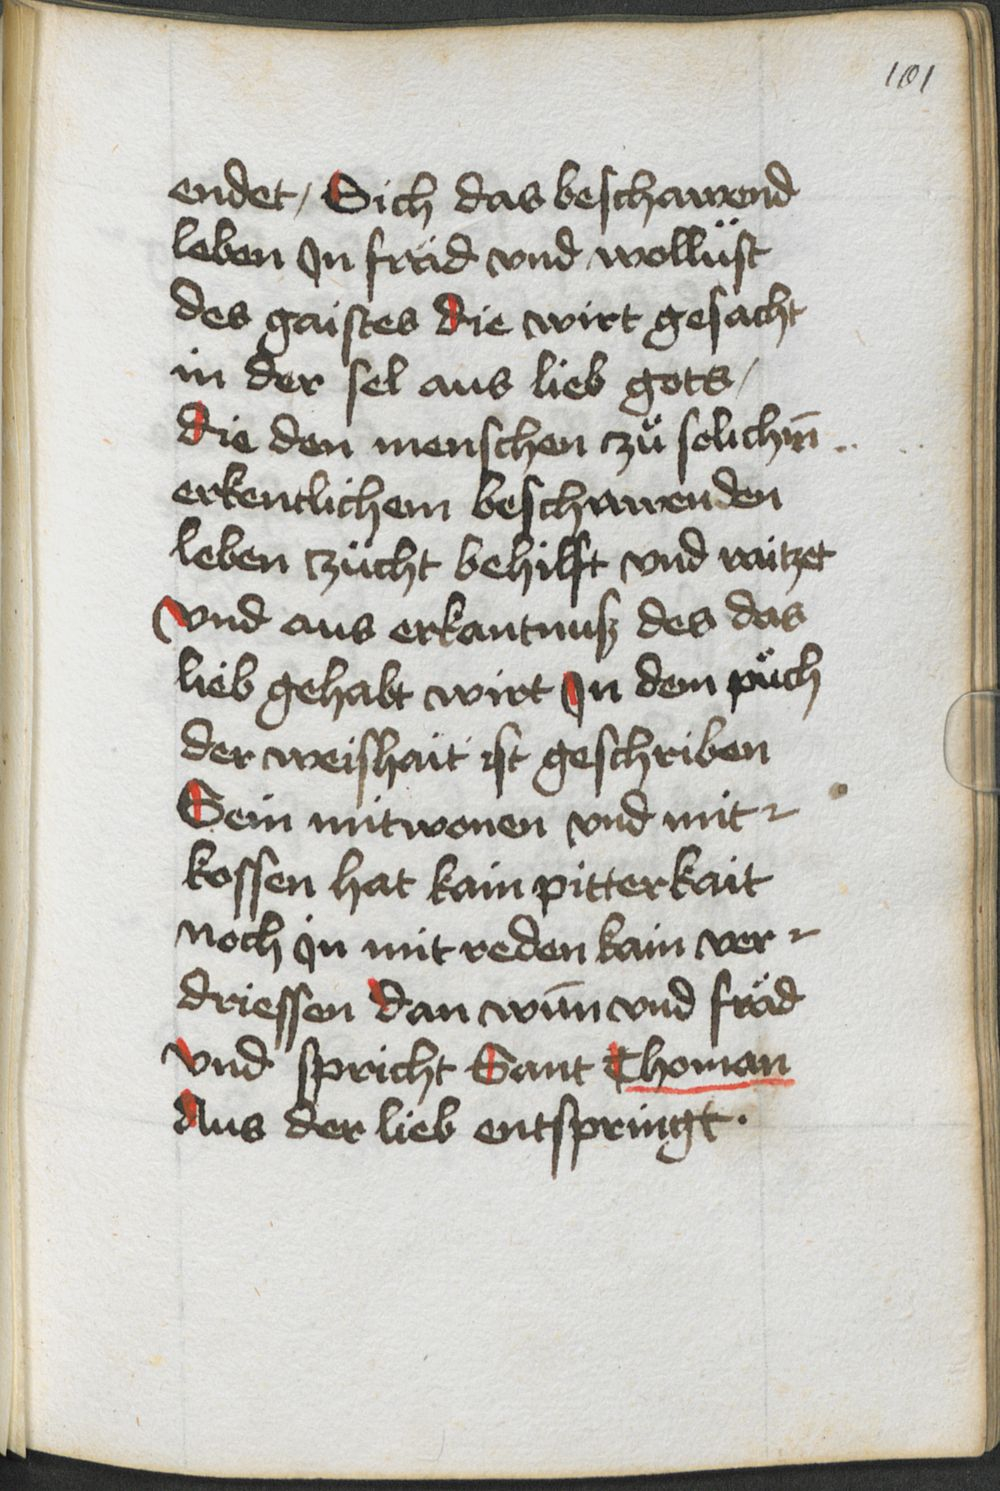 101
endet / Sich das beschawend
leben In fräd vnd wollüst
des gaistes die wirt gesacht
in der sel aus lieb gots /
die den menschen zů solichm̄
erkentlichem beschawenden
leben zücht behilft vnd raitzet
vnd aus erkantnuß des das
lieb gehabt wirt In dem půch
der weishait ist geschriben
Sein mitwonen vnd mit-
kossen hat kain pitterkait
noch In mit reden kain ver-
driessen dan wun̄ vnd fräd
vnd spricht Sant Thoman
Aus der lieb entspringt ·